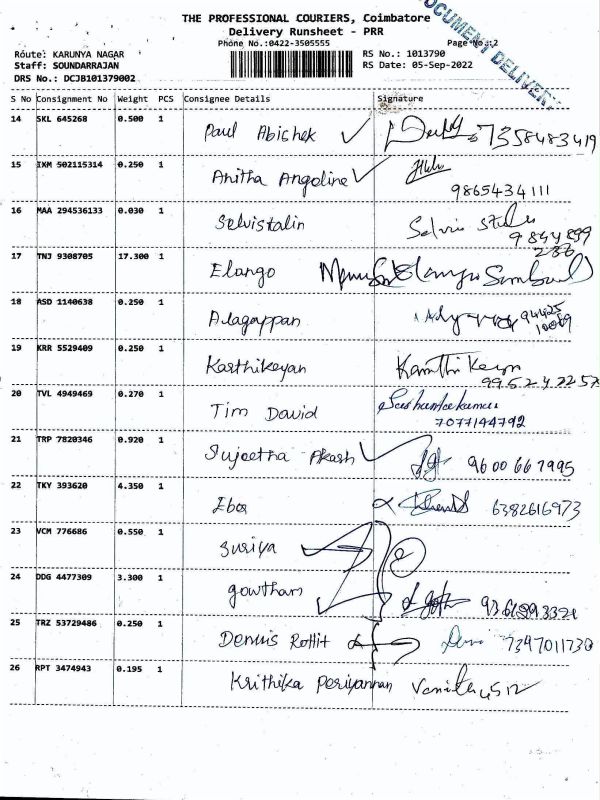 THE PROFESSIONAL COURIERS, Coimbatore
Delivery Runsheet - PRR
Phone No.:0422-3505555
Page No.:2
DOCUMENT DELIVERY
Route: KARUNYA NAGAR
RS No.: 1013790
Staff: SOUNDARRAJAN
RS Date: 05-Sep-2022
DRS No.: DCJB101379002
S No Consignment No Weight PCS Consignee Details Signature
14 SKL 645268 0.500 1 Paul Abishek 7358483419
15 IXM 502115314 0.250 1 Anitha Angoline 9865434111
16 MAA 294536133 0.030 1 Selvistalin
17 TNJ 9308705 17.300 1 Elango
18 ASD 1140638 0.250 1 Alagappan
19 KRR 5529409 0.250 1 Karthikeyan
20 TVL 4949469 0.270 1 Tim David 7077144792
21 TRP 7820346 0.920 1 Sujeetha Akash 9600667995
22 TKY 393620 4.350 1 6382616973
23 VCM 776686 0.550 1 Suriya
24 DDG 4477309 3.300 1 gowtham
25 TRZ 53729486 0.250 1 Dennis Rottit 7347011730
26 RPT 3474943 0.195 1 Krithika Periyannan